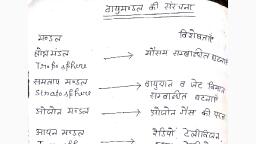 वायुमण्डल की संरचना
मण्डल विशेषताएँ
क्षोभ मंडल → मौसम सम्बन्धित घटनाएँ
Troposphere
समताप मण्डल → वायुयान व जेट विमान
Stratosphere सम्बन्धित घटनाएँ
ओजोन मण्डल → ओजोन गैस की परत
आयन मण्डल → रेडियो टेलीविजन